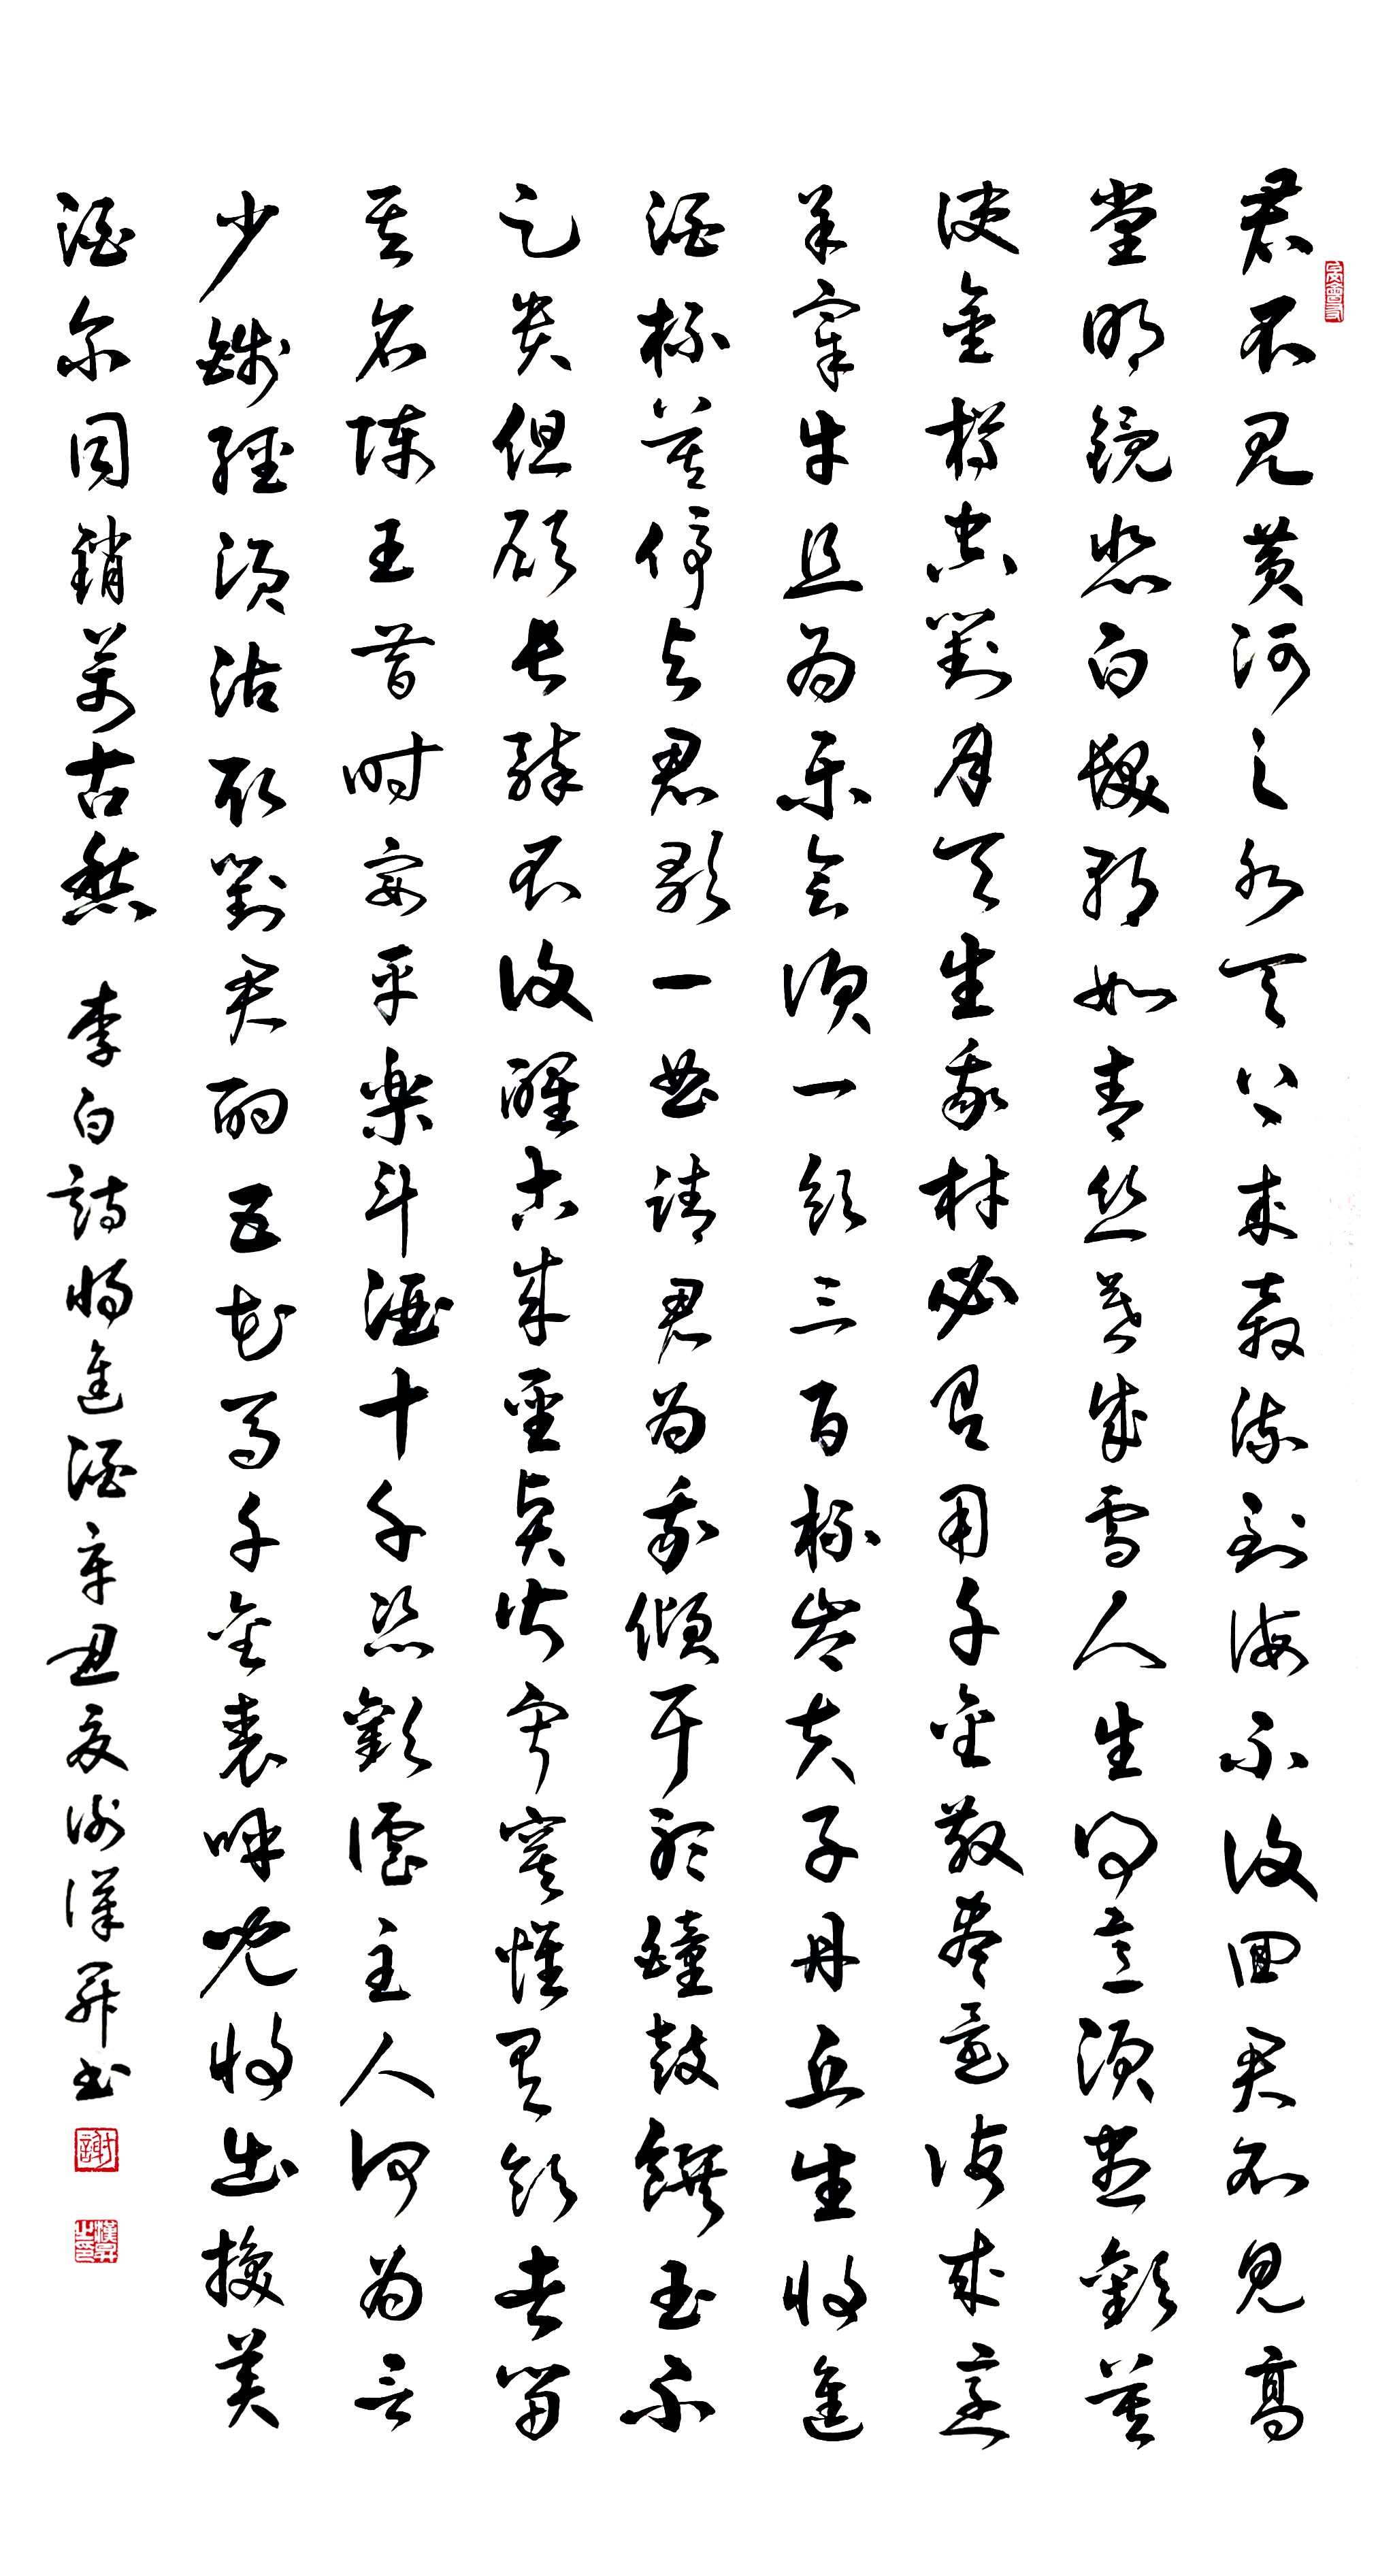 君不見黃河之水天上來奔流到海不復回君不見高
堂明鏡悲白髮朝如青絲暮成雪人生得意須盡歡莫
使金樽空對月天生我材必有用千金散盡還復來烹
羊宰牛且為樂會須一飲三百杯岑夫子丹丘生將進
酒杯莫停與君歌一曲請君為我傾耳聽鐘鼓饌玉不
足貴但願長醉不復醒古來聖賢皆寂寞惟有飲者留
其名陳王昔時宴平樂斗酒十千恣歡謔主人何為言
少錢徑須沽取對君酌五花馬千金裘呼兒將出換美
酒尔同銷萬古愁 李白詩將進酒辛丑夏謝漢昇書
謝
漢昇之印